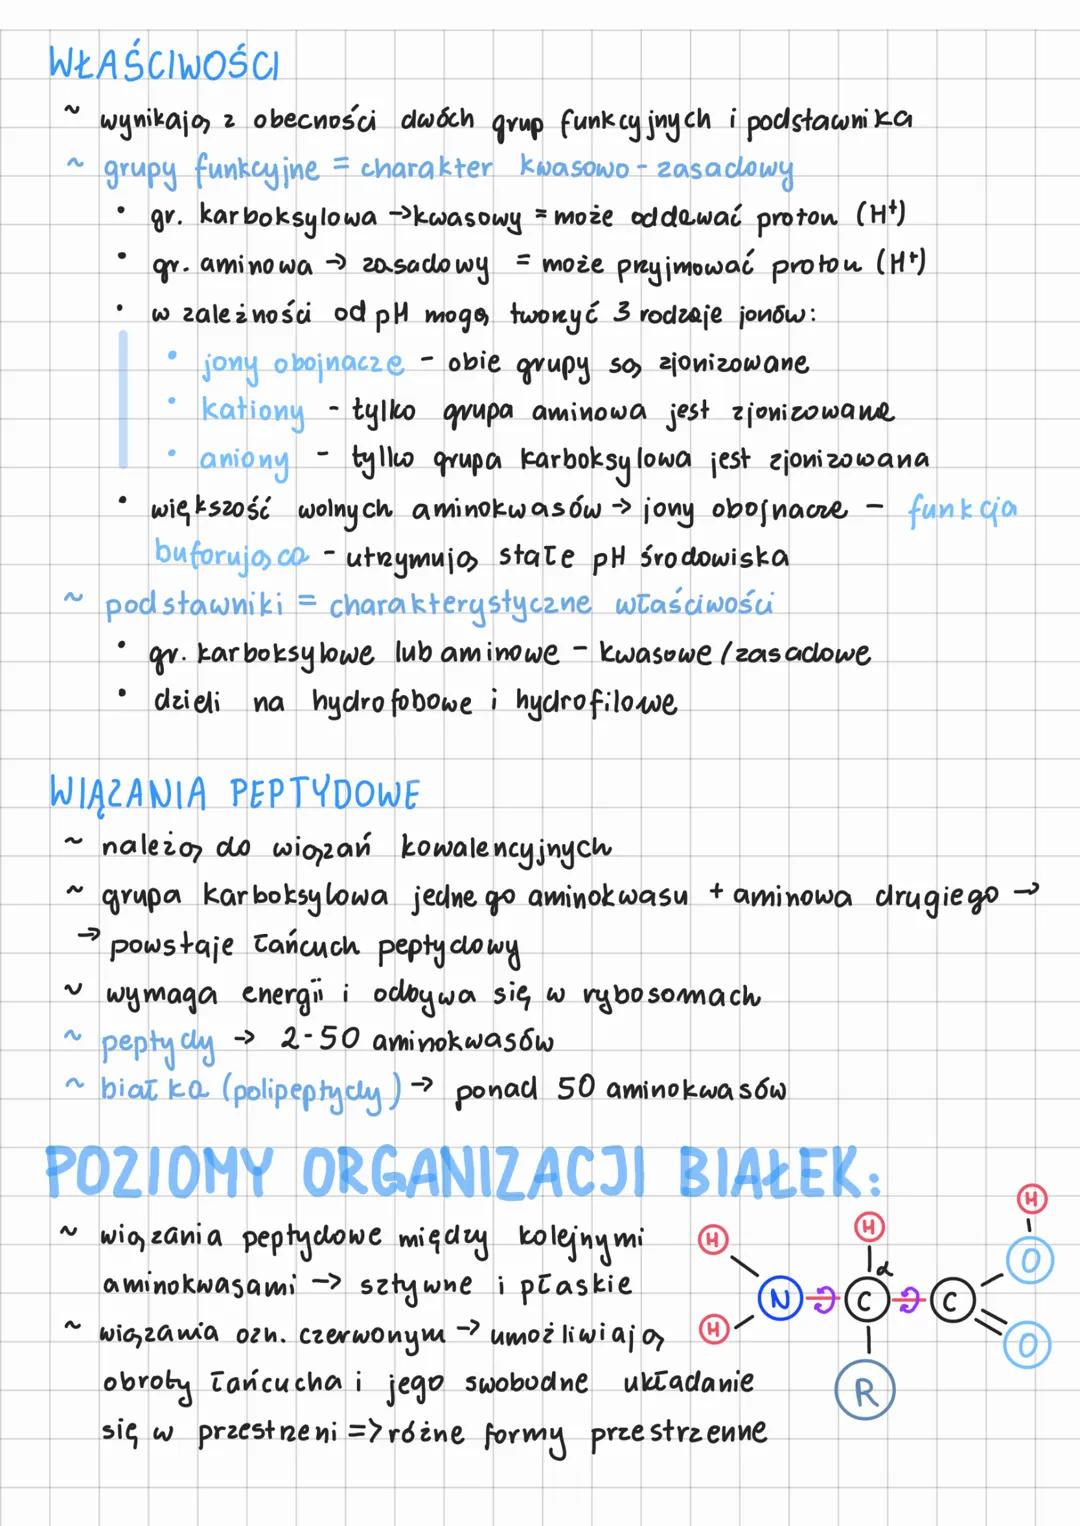 WŁAŚCIWOŚCI
~ wynikają z obecności dwóch grup funkcyjnych i podstawnika
~ grupy funkcyjne = charakter kwasowo - zasadowy
• gr. karboksylowa → kwasowy = może oddawać proton (H⁺)
• gr. aminowa → zasadowy = może przyjmować proton (H⁺)
• w zależności od pH mogą tworzyć 3 rodzaje jonów:
• jony obojnacze - obie grupy są zjonizowane
• kationy - tylko grupa aminowa jest zjonizowana
• aniony - tylko grupa karboksylowa jest zjonizowana
• większość wolnych aminokwasów → jony obojnacze - funkcja
buforująca - utrzymują stałe pH środowiska
~ podstawniki = charakterystyczne właściwości
• gr. karboksylowe lub aminowe - kwasowe / zasadowe
• dzieli na hydrofobowe i hydrofilowe
WIĄZANIA PEPTYDOWE
~ należą do wiązań kowalencyjnych
~ grupa karboksylowa jednego aminokwasu + aminowa drugiego →
→ powstaje łańcuch peptydowy
~ wymaga energii i odbywa się w rybosomach
~ peptydy → 2-50 aminokwasów
~ białka (polipeptydy) → ponad 50 aminokwasów
POZIOMY ORGANIZACJI BIAŁEK:
~ wiązania peptydowe między kolejnymi
aminokwasami → sztywne i płaskie
~ wiązania ozn. czerwonym → umożliwiają
obroty łańcucha i jego swobodne układanie
się w przestrzeni => różne formy przestrzenne
H H H
α O
N C C
H O
R